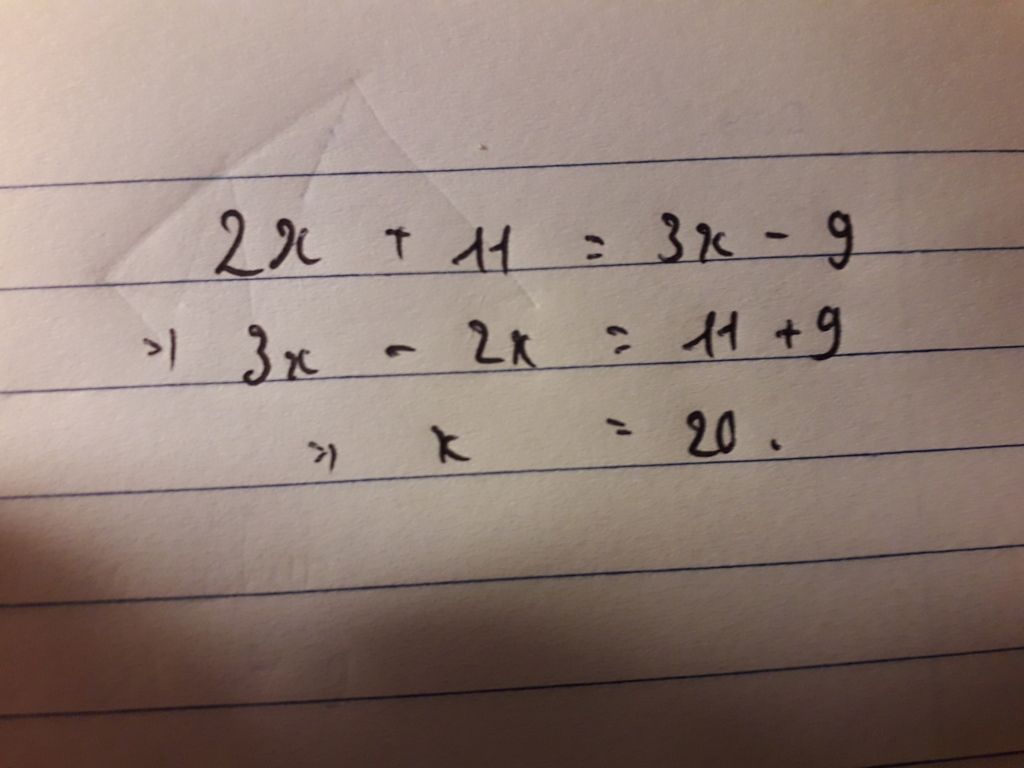 2x + 11 = 3x - 9
=> 3x - 2x = 11 + 9
=> x = 20.